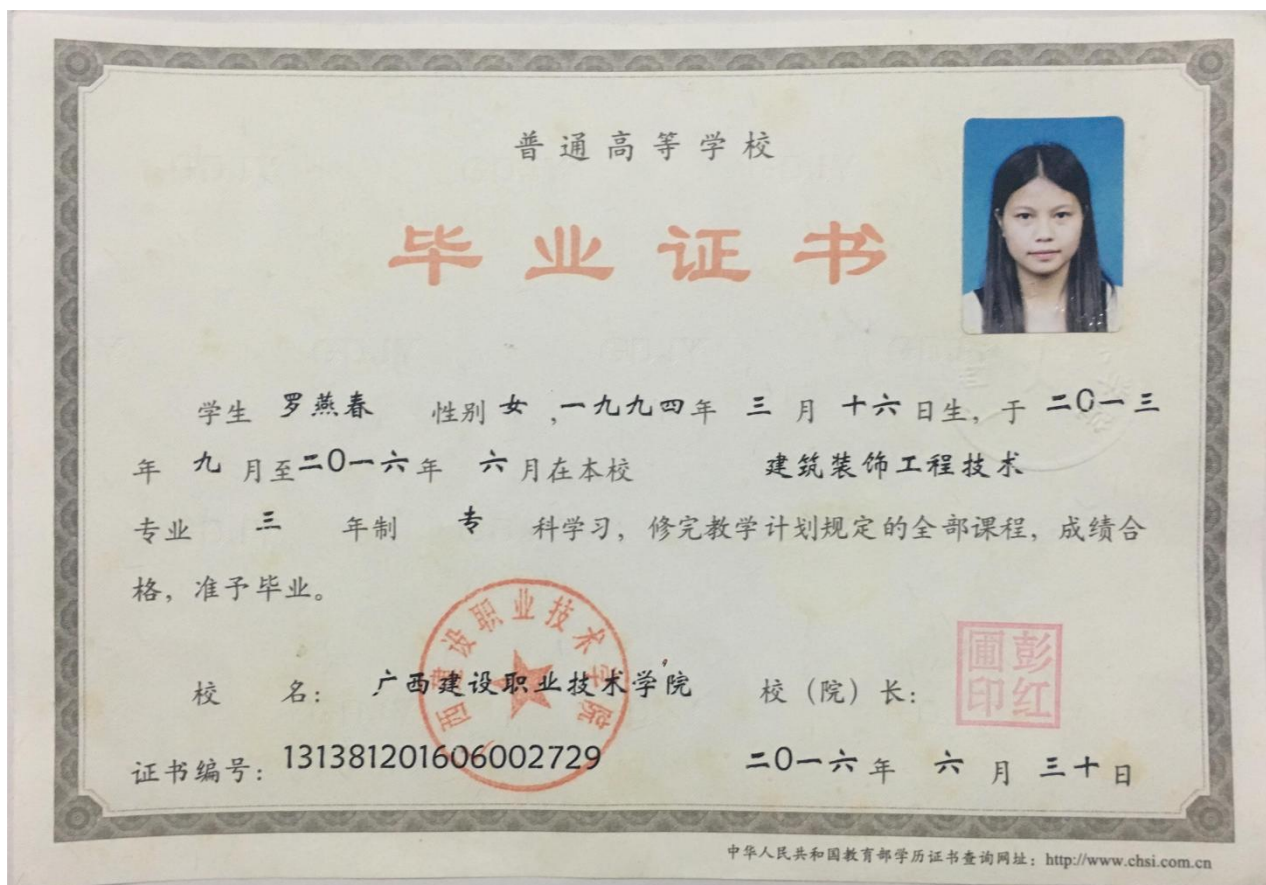 普通高等学校
毕业证书
学生 罗燕春 性别 女 ,一九九四年 三 月 十六日生, 于 二〇一三
年 九 月至二〇一六年 六月在本校 建筑装饰工程技术
专业 三 年制 专 科学习, 修完教学计划规定的全部课程, 成绩合
格, 准予毕业。
广西建设职业技术学院
彭红圃印
校 名: 广西建设职业技术学院 校（院）长:
证书编号: 131381201606002729 二〇一六年 六 月 三十日
中华人民共和国教育部学历证书查询网址: http://www.chsi.com.cn